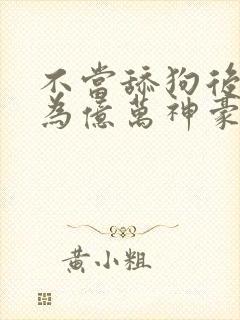 不當舔狗後
為億萬神豪
黃小粗